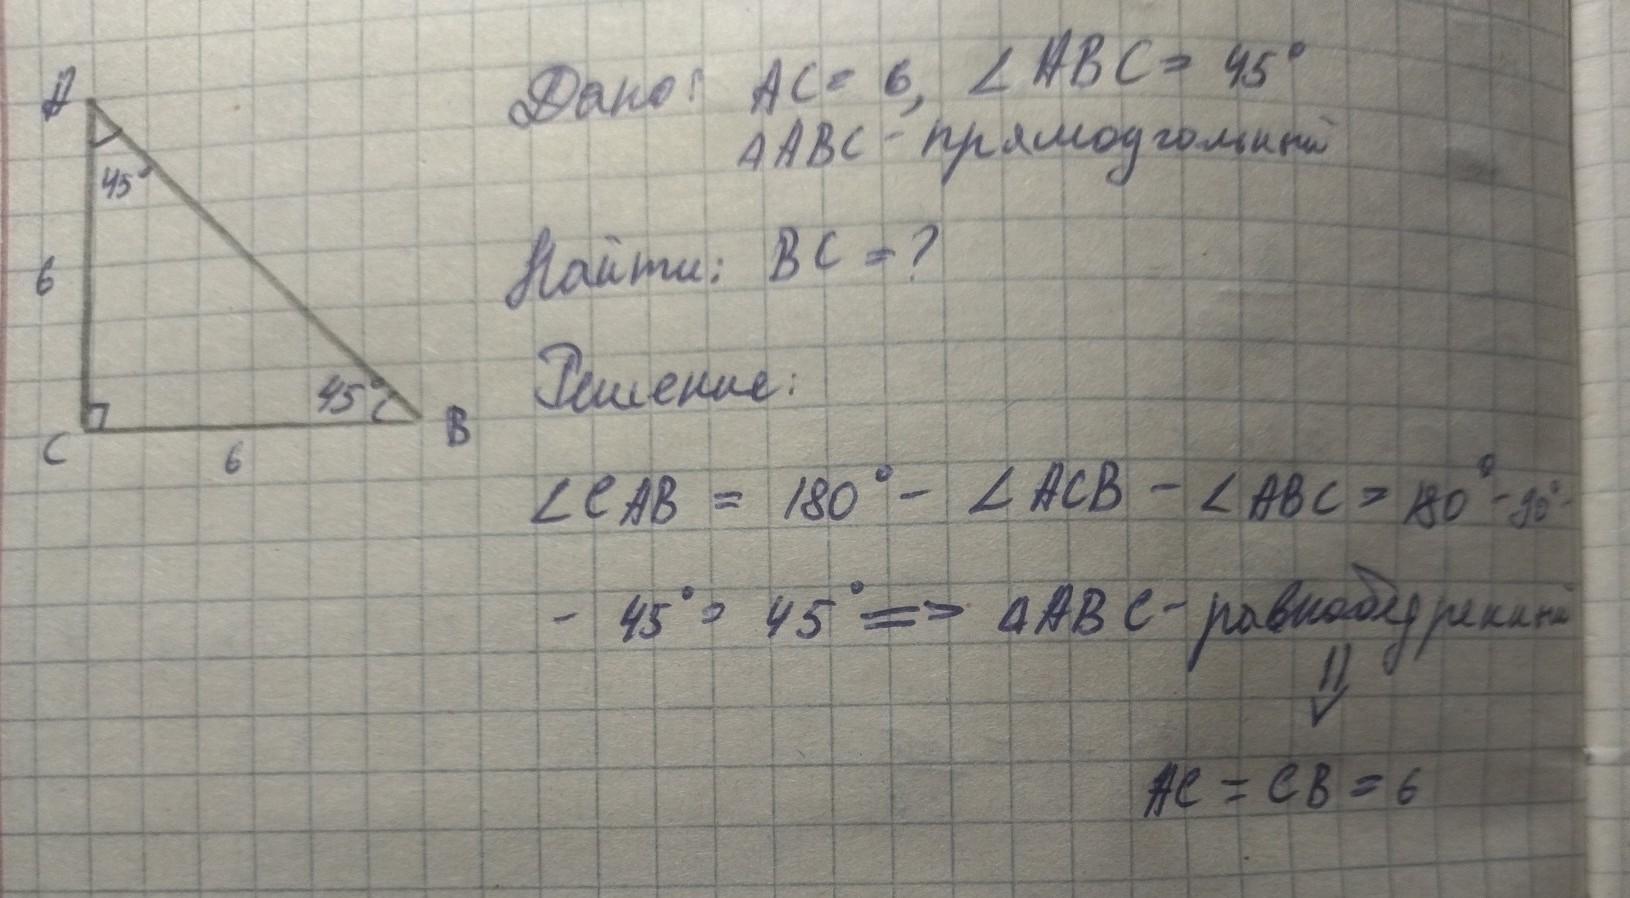 A
45°
6
45°
C
6
B
Дано: AC = 6, ∠ABC = 45°
△ABC - прямоугольный
Найти: BC = ?
Решение:
∠CAB = 180° - ∠ACB - ∠ABC = 180° - 90° -
- 45° = 45° => △ABC - равнобедренный
⇓
AC = CB = 6